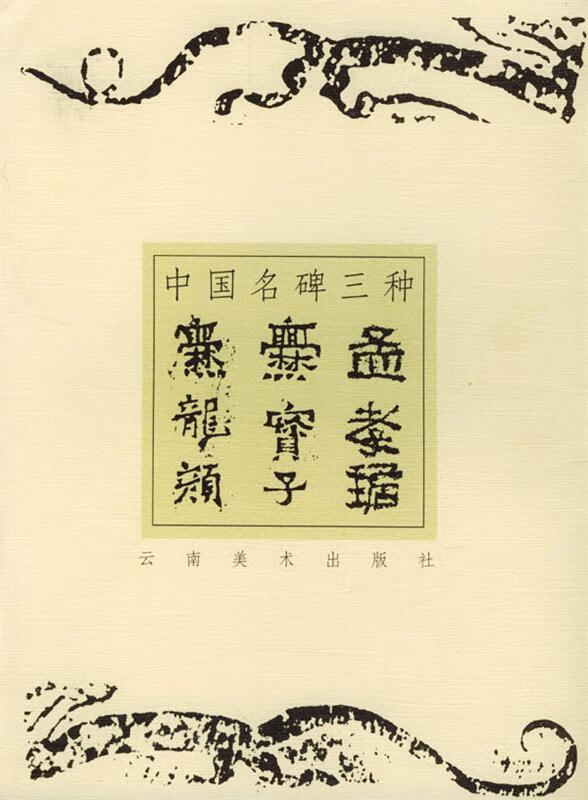 中国名碑三种
孟孝琚
爨寶子
爨龍顔
云南美术出版社